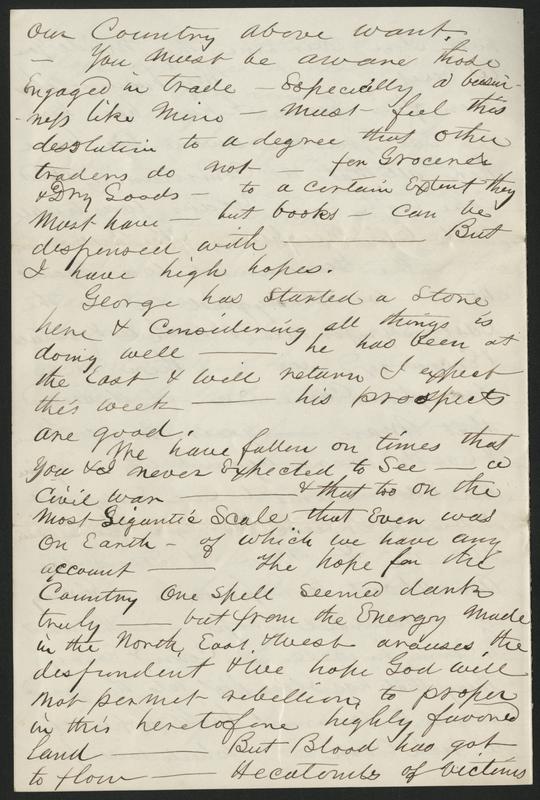 Our Country above want.
— You must be aware those
Engaged in trade — Especially a busi-
ness like mine — must feel this
desolution to a degree that other
traders do not — for Groceries
& Dry Goods — to a certain Extent they
must have — but books — can be
dispensed with — But
I have high hopes.
George has started a Store
here & Considering all things is
doing well — he has been at
the East & will return I expect
this week — his prospects
are good.
We have fallen on times that
You & I never Expected to See — a
Civil war — & that too on the
most Gigantic Scale that Ever was
on Earth — of which we have any
account — The hope for the
Country One Spell Seemed dark
truly — but from the Energy made
in the North, East, & West arouses the
despondent & We hope God will
not permit rebellion, to prosper
in this heretofore highly favored
land — But Blood has got
to flow — Hecatombs of victims